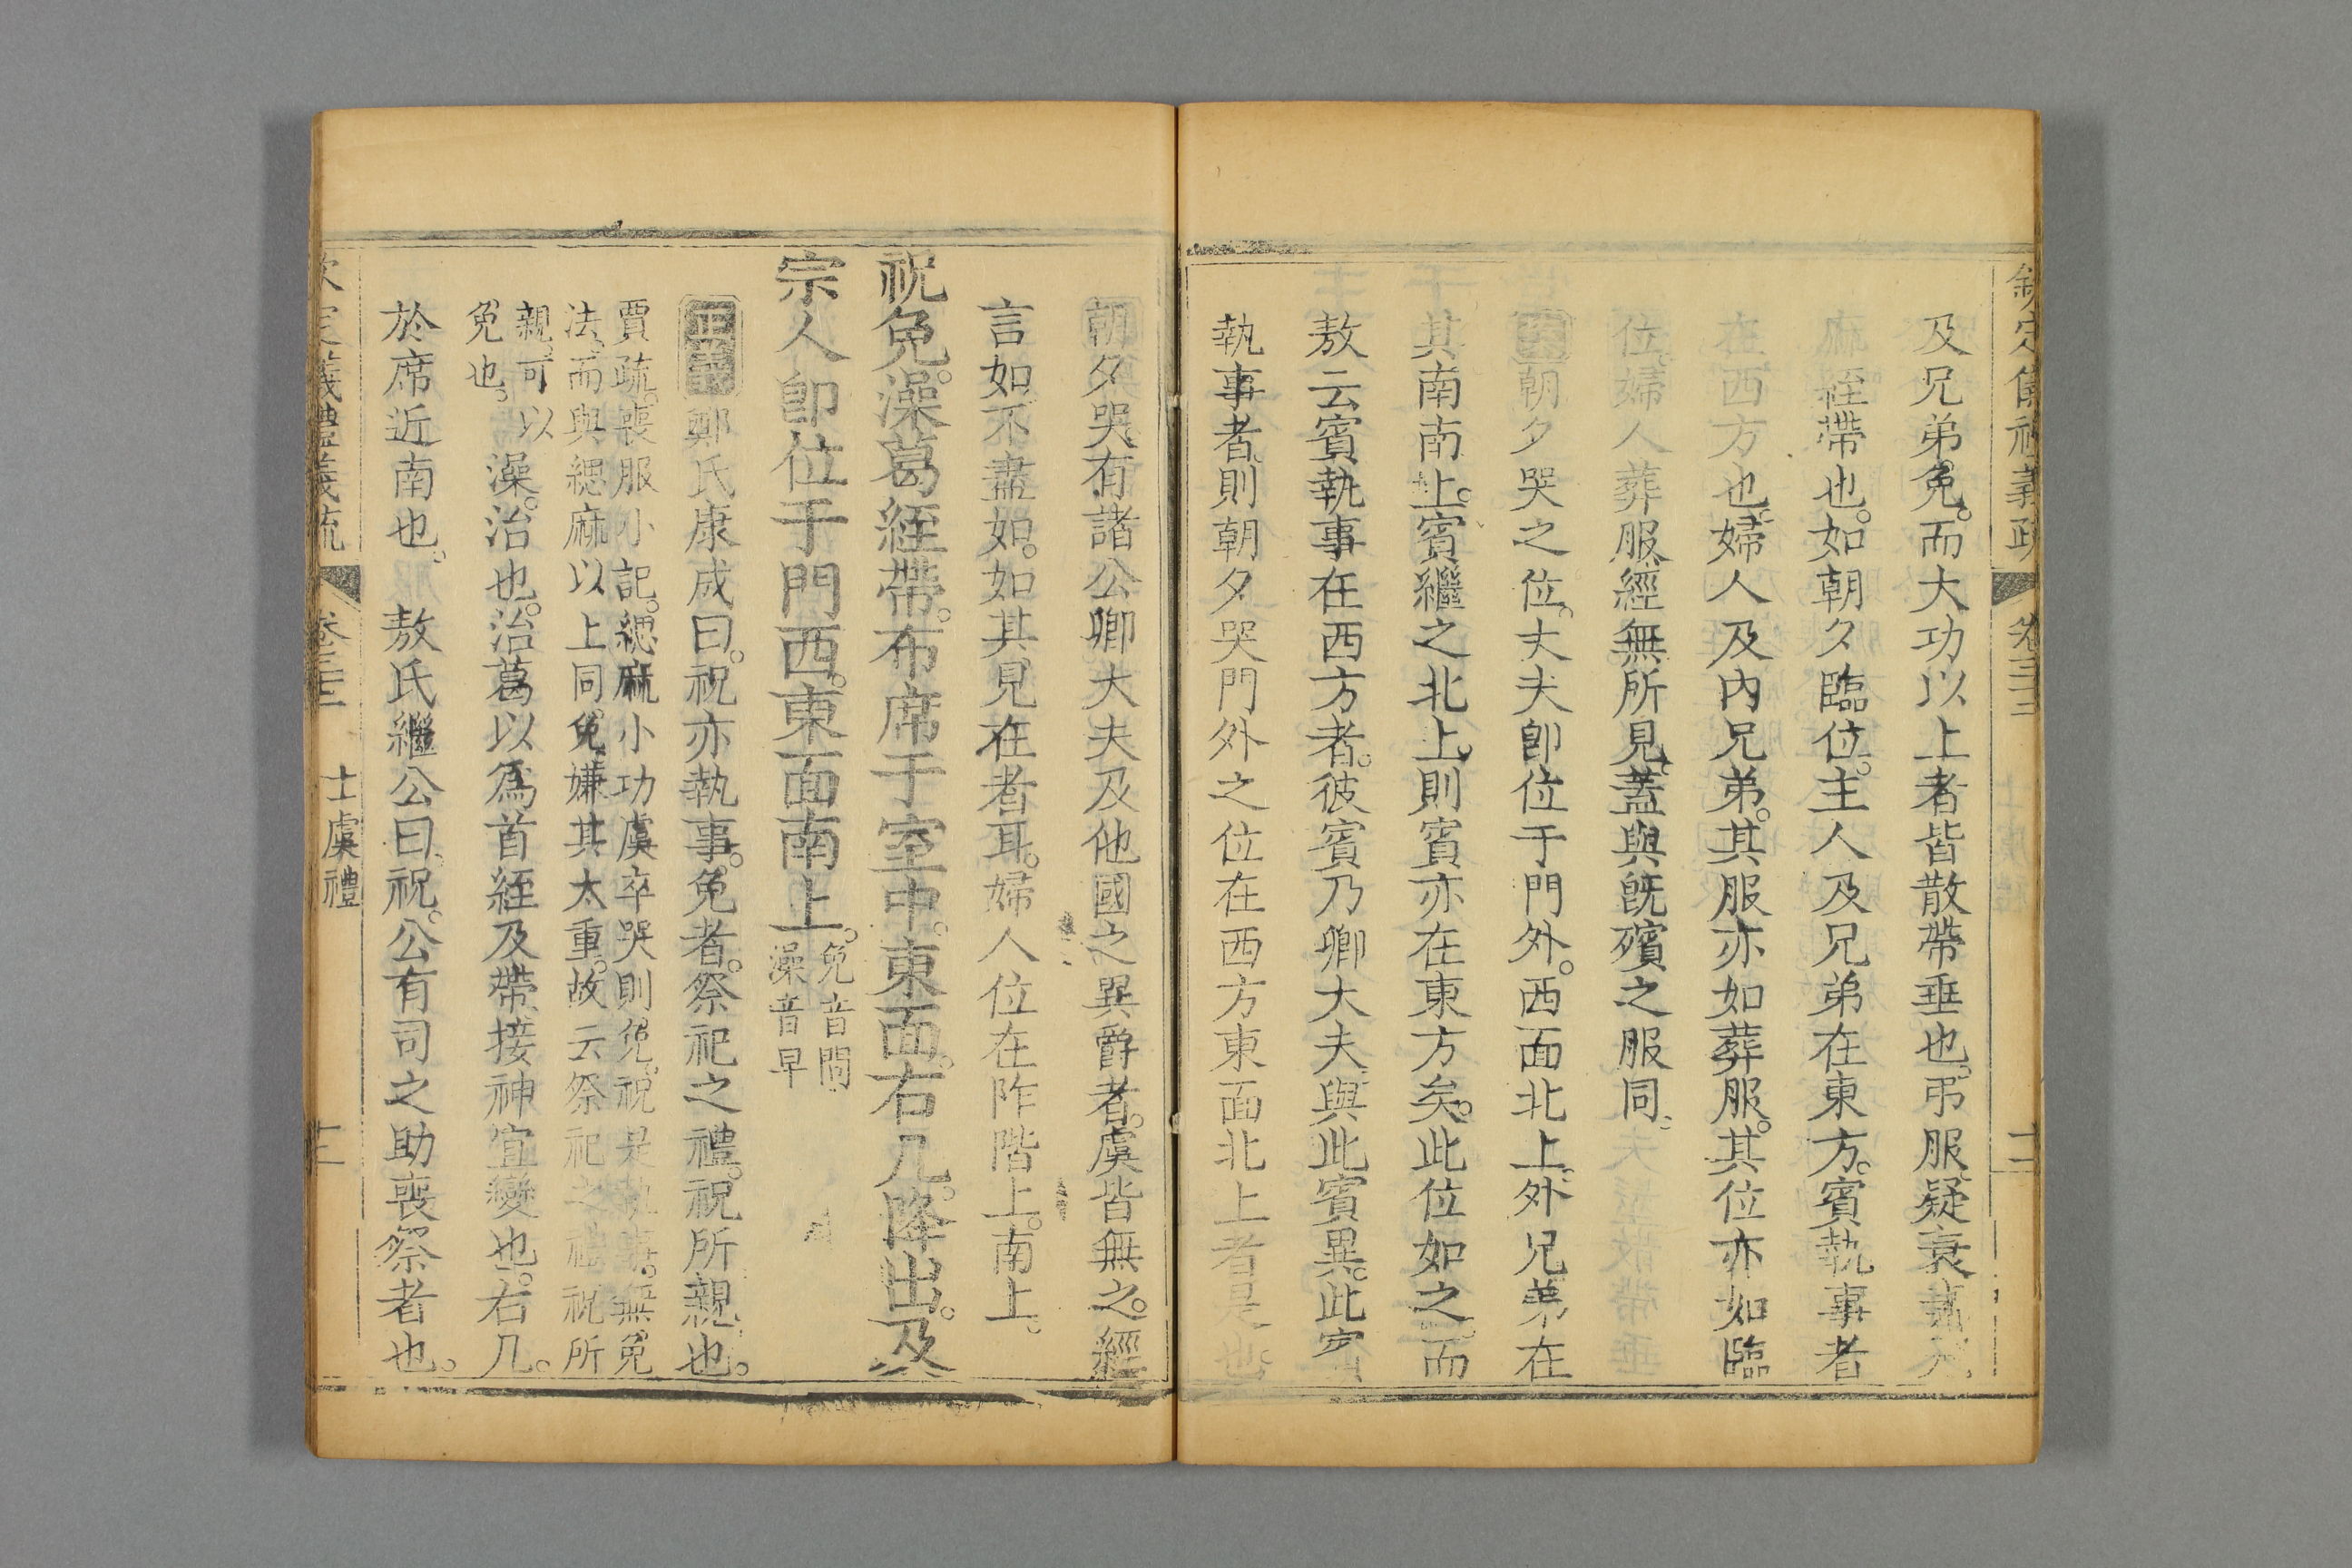 欽定儀禮義疏 卷三十三 十二
及兄弟免。而大功以上者皆散帶垂也。弔服。疑衰
麻絰帶也。如朝夕臨位。主人及兄弟在東方。賓執事者
在西方也。婦人及內兄弟。其服亦如葬服。其位亦如臨
位。婦人葬服。經無所見。蓋與旣殯之服同。
朝夕哭之位。丈夫卽位于門外。西面北上。外兄弟在
其南南上。賓繼之北上。則賓亦在東方矣。此位如之。而
敖云賓執事在西方者。彼賓乃卿大夫與此賓異。此賓
執事者。則朝夕哭門外之位在西方東面北上者是也。
朝夕哭。有諸公卿大夫及他國之異爵者。虞皆無之。經
言如不盡如。如其見在者耳。婦人位在阼階上。南上。
祝免。澡葛絰帶。布席于室中。東面。右几。降出。及
宗人卽位于門西。東面南上。免音問 澡音早
正義 鄭氏康成曰。祝亦執事。免者。祭祀之禮。祝所親也。
賈疏。喪服小記。緦麻小功虞卒哭則免。祝是執事。無免
法。而與緦麻以上同免。嫌其太重。故云祭祀之禮祝所
親。可以
免也。
澡。治也。治葛以爲首絰及帶。接神宜變也。右几。
於席近南也。 敖氏繼公曰。祝。公有司之助喪祭者也。
欽定儀禮義疏 卷三十三 士虞禮 十三